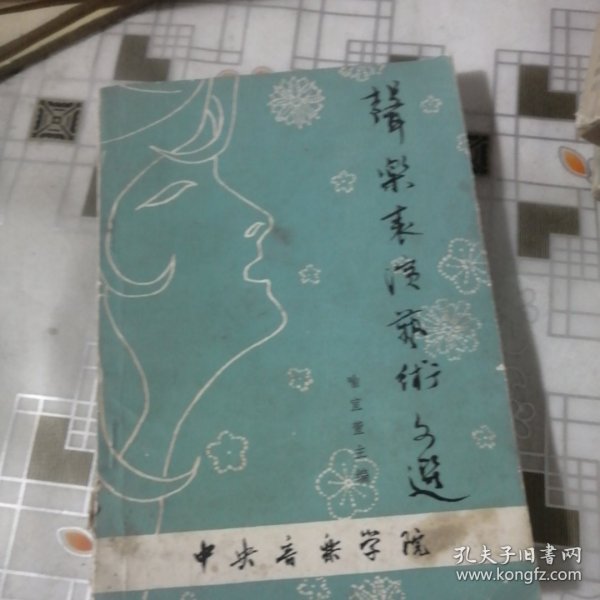 聲樂表演藝術文選
喻宜萱主编
中央音樂学院
孔夫子旧书网
www.kongfz.com